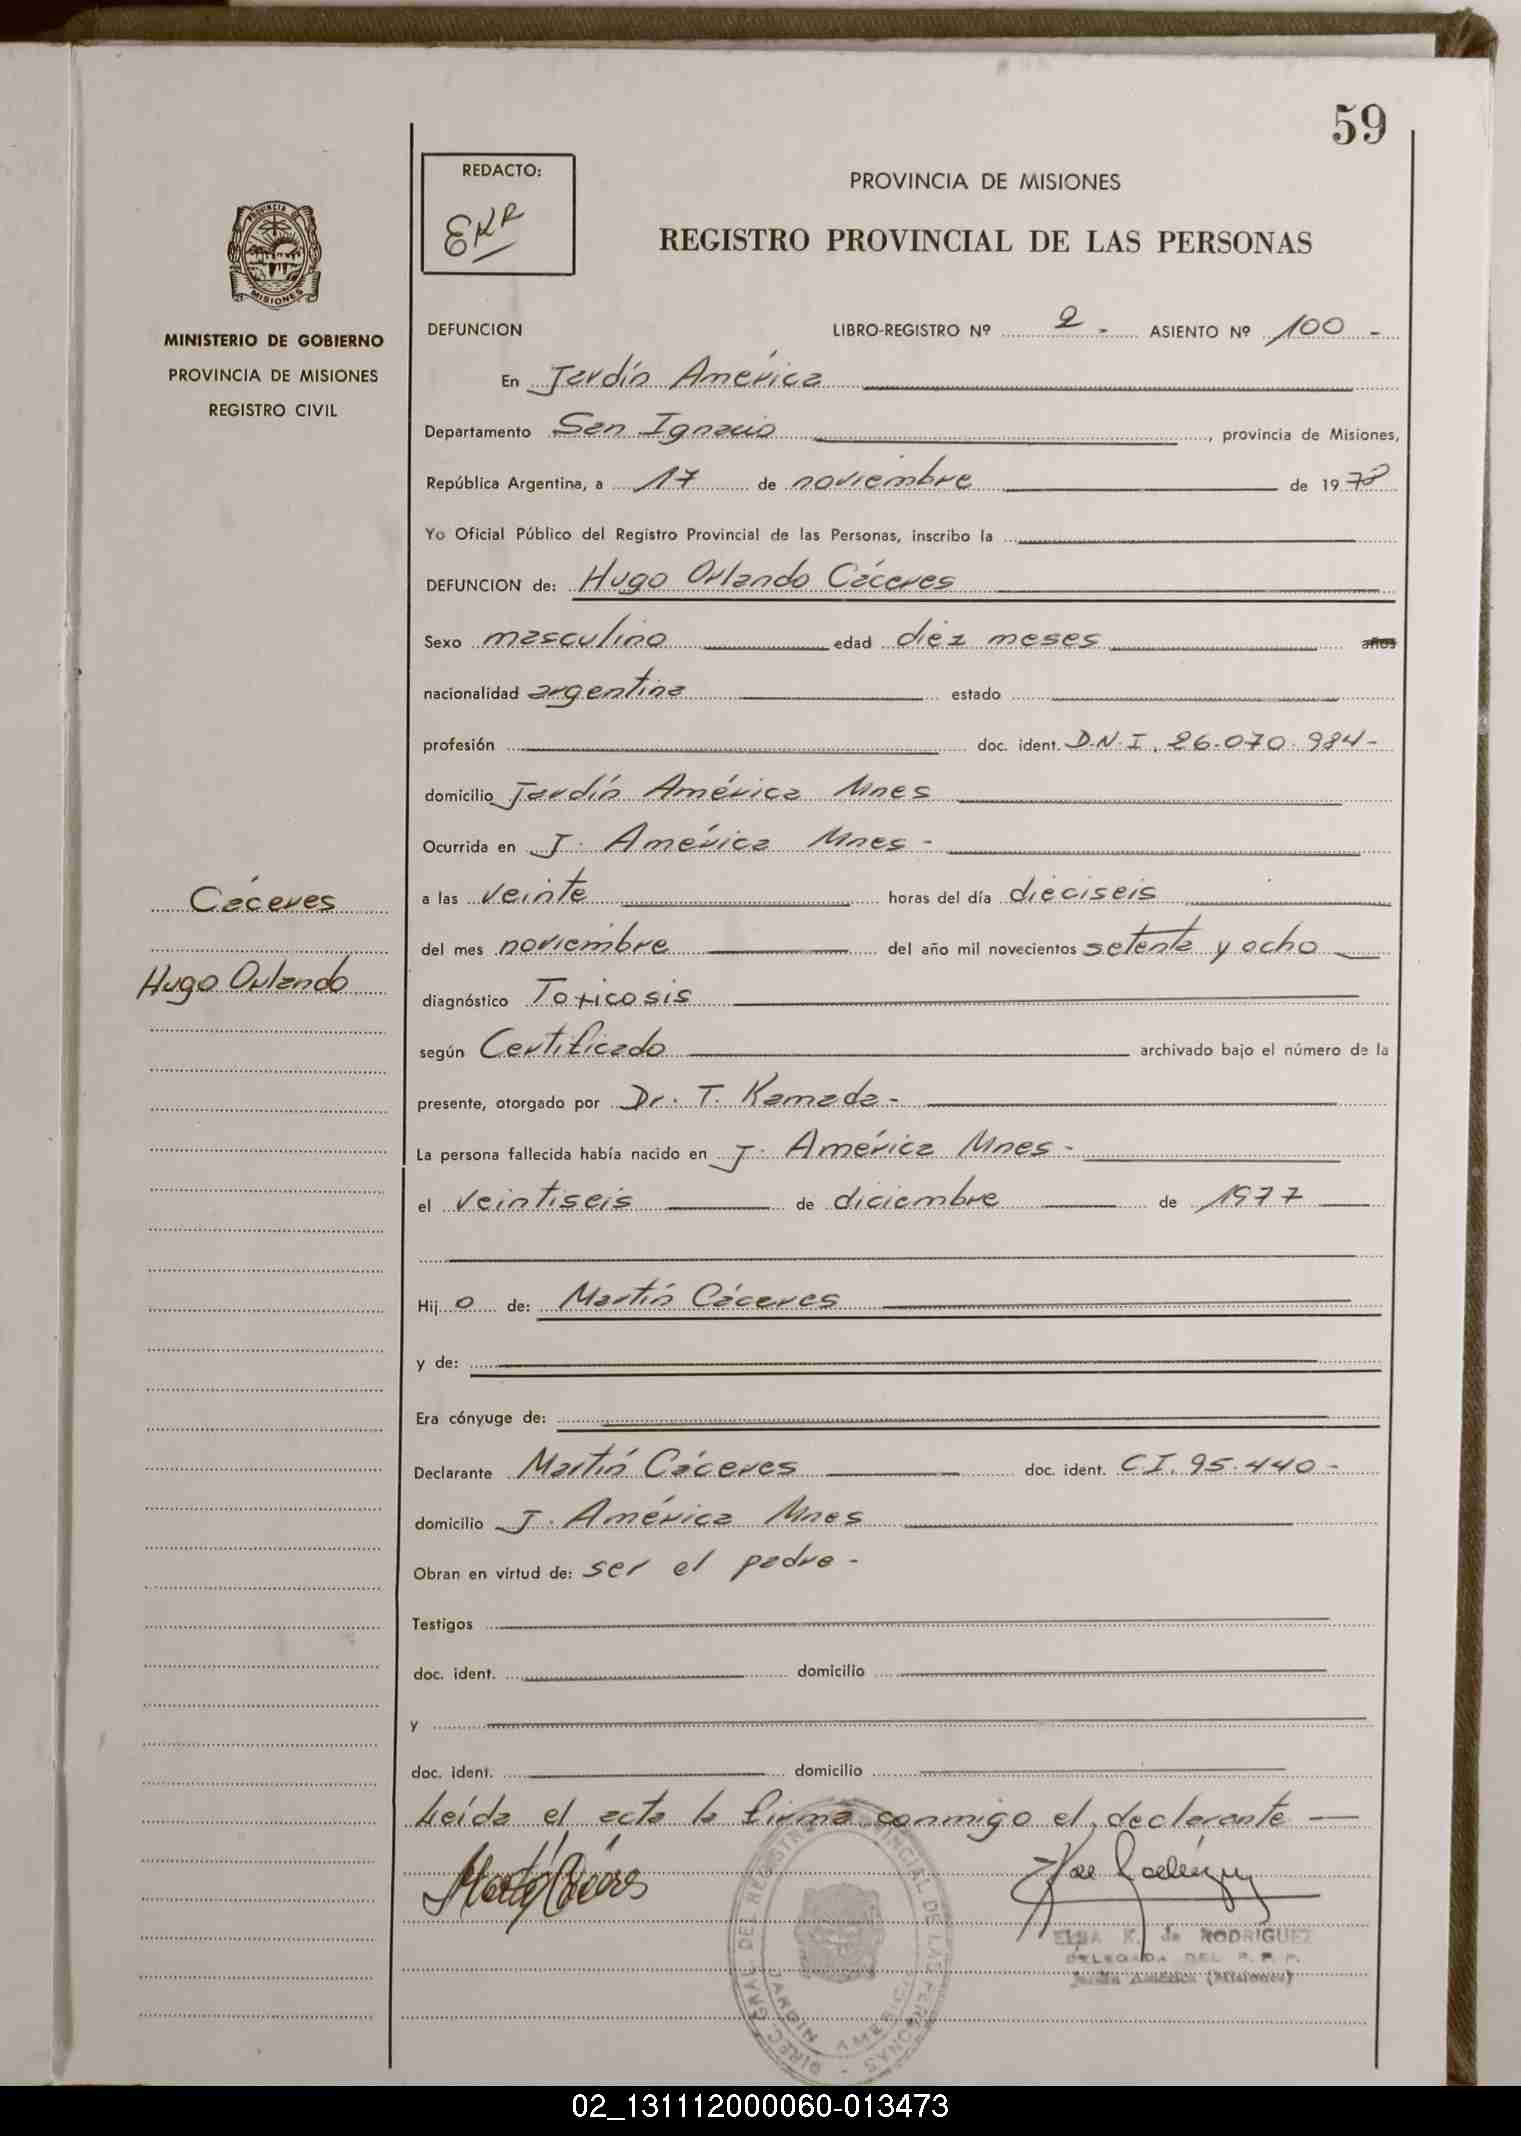 59
REDACTO:
EKR
PROVINCIA DE MISIONES
REGISTRO PROVINCIAL DE LAS PERSONAS
PROVINCIA DE
MISIONES
MINISTERIO DE GOBIERNO
PROVINCIA DE MISIONES
REGISTRO CIVIL
DEFUNCION LIBRO-REGISTRO Nº 2 - ASIENTO Nº 100 -
En Jardín América
Departamento San Ignacio, provincia de Misiones,
República Argentina, a 17 de noviembre de 1978
Yo Oficial Público del Registro Provincial de las Personas, inscribo la
DEFUNCION de: Hugo Orlando Cáceres
Sexo masculino edad diez meses años
nacionalidad argentina estado
profesión doc. ident. D.N.I. 26.070.984-
domicilio Jardín América Mnes
Ocurrida en J. América Mnes -
Cáceres
a las veinte horas del día dieciseis
del mes noviembre del año mil novecientos setenta y ocho
Hugo Orlando
diagnóstico Toxicosis
según Certificado archivado bajo el número de la
presente, otorgado por Dr. T. Kamada -
La persona fallecida había nacido en J. América Mnes -
el veintiseis de diciembre de 1977
Hijo de: Martín Cáceres
y de:
Era cónyuge de:
Declarante Martín Cáceres doc. ident. C.I. 95.440 -
domicilio J. América Mnes
Obran en virtud de: ser el padre -
Testigos
doc. ident. domicilio
y
doc. ident. domicilio
Leída el acta la firma conmigo el declarante —
Martín Cáceres
ELSA K. de RODRIGUEZ
DELEGADA DEL R. P. P.
Jardín América (Misiones)
DIREC. GRAL. DEL REGISTRO PROVINCIAL DE LAS PERSONAS -
JARDIN AMERICA
02_131112000060-013473